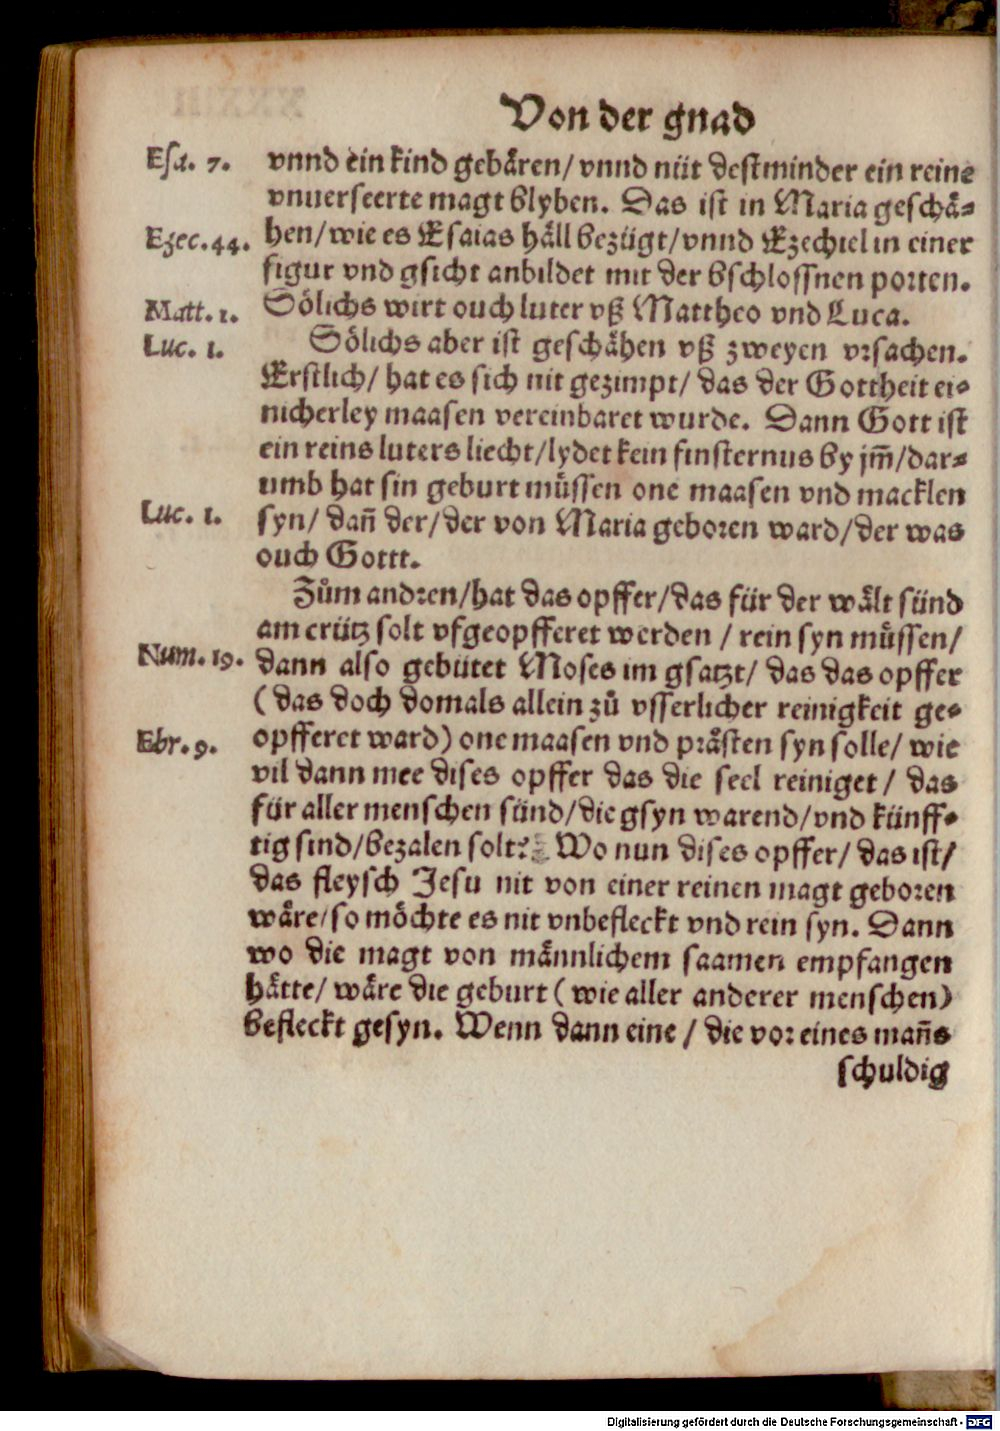 Von der gnad
Esa. 7.
vnnd ein kind gebären/ vnnd nüt destminder ein reine
vnuerseerte magt blyben. Das ist in Maria geschä⸗
Ezec. 44.
hen/ wie es Esaias häll bezügt/ vnnd Ezechiel in einer
figur vnd gsicht anbildet mit der bschlossnen porten.
Matt. 1.
Sölichs wirt ouch luter vß Mattheo vnd Luca.
Luc. 1.
Sölichs aber ist geschähen vß zweyen vrsachen.
Erstlich/ hat es sich nit gezimpt/ das der Gottheit ei⸗
nicherley maasen vereinbaret wurde. Dann Gott ist
ein reins luters liecht/ lydet kein finsternus by jm̃/ dar⸗
umb hat sin geburt müssen one maasen vnd macklen
Luc. 1.
syn/ dañ der/ der von Maria geboren ward/ der was
ouch Gottt.
Zům andren/ hat das opffer/ das für der wält sünd
am crütz solt vfgeopfferet werden / rein syn müssen/
Num. 19.
dann also gebütet Moses im gsatzt/ das das opffer
(das doch domals allein zů vsserlicher reinigkeit ge⸗
Ebr. 9.
opfferet ward) one maasen vnd prästen syn solle/ wie
vil dann mee dises opffer das die seel reiniget / das
für aller menschen sünd/ die gsyn warend/ vnd künff⸗
tig sind/ bezalen solt? Wo nun dises opffer/ das ist/
das fleysch Jesu nit von einer reinen magt geboren
wäre/ so möchte es nit vnbefleckt vnd rein syn. Dann
wo die magt von männlichem saamen empfangen
hätte/ wäre die geburt (wie aller anderer menschen)
befleckt gesyn. Wenn dann eine / die vor eines mañs
schuldig
Digitalisierung gefördert durch die Deutsche Forschungsgemeinschaft - DFG